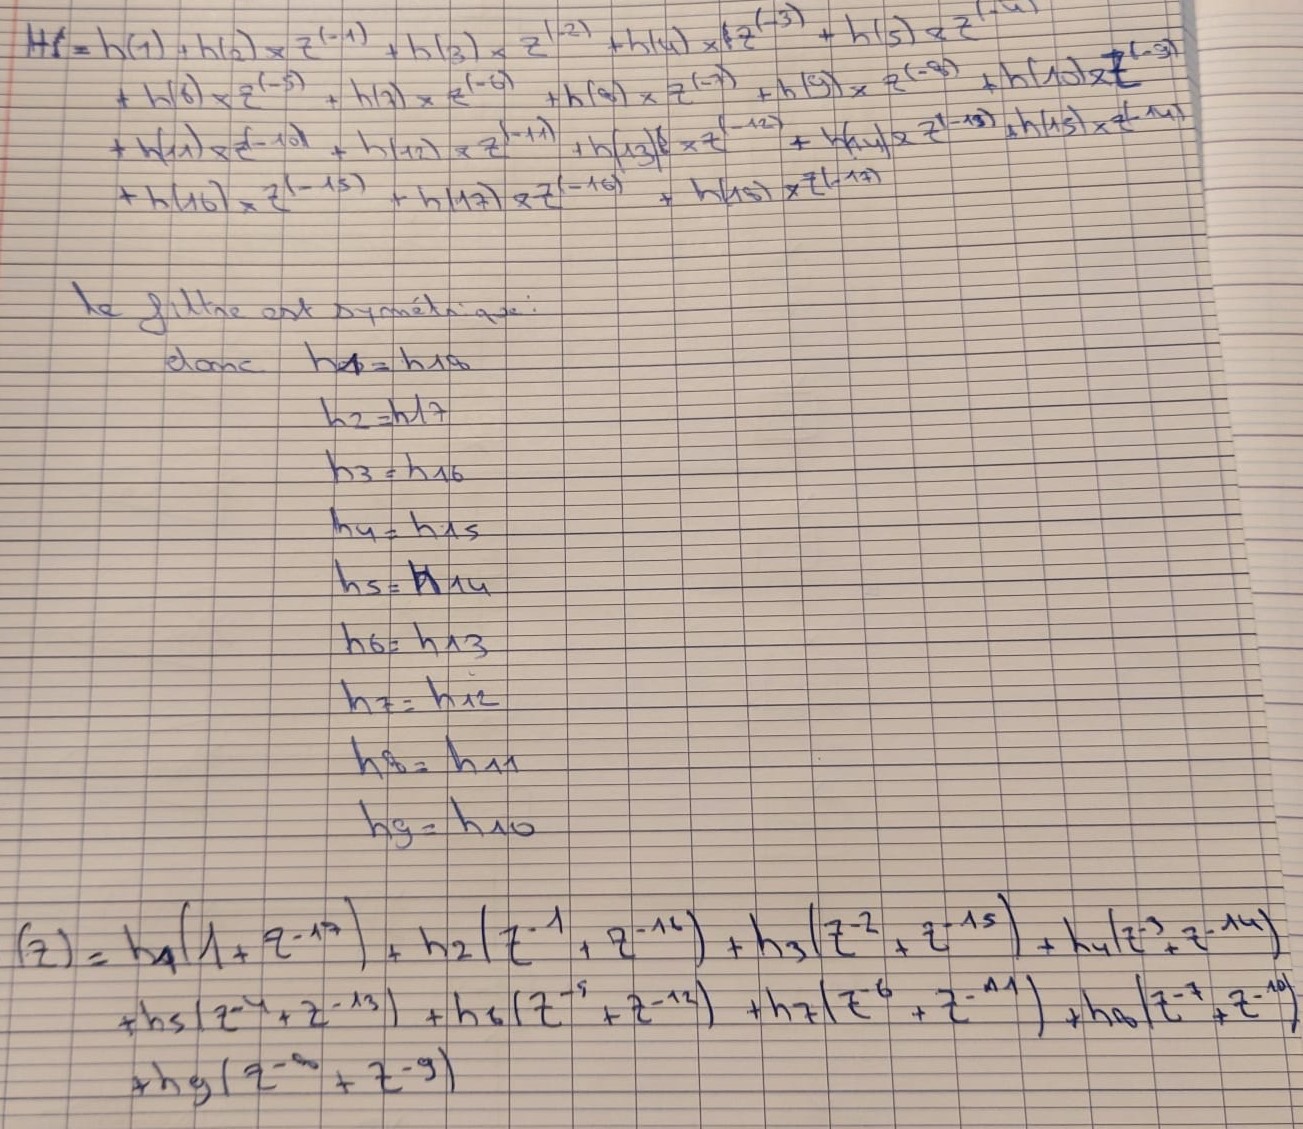 Hf = h(1) + h(2) × z^(-1) + h(3) × z^(-2) + h(4) × z^(-3) + h(5) × z^(-4)
+ h(6) × z^(-5) + h(7) × z^(-6) + h(8) × z^(-7) + h(9) × z^(-8) + h(10) × z^(-9)
+ h(11) × z^(-10) + h(12) × z^(-11) + h(13) × z^(-12) + h(14) × z^(-13) + h(15) × z^(-14)
+ h(16) × z^(-15) + h(17) × z^(-16) + h(18) × z^(-17)
le filtre est symétrique:
donc h1 = h18
h2 = h17
h3 = h16
h4 = h15
h5 = h14
h6 = h13
h7 = h12
h8 = h11
h9 = h10
(z) = h1(1 + z^-17) + h2(z^-1 + z^-16) + h3(z^-2 + z^-15) + h4(z^-3 + z^-14)
+ h5(z^-4 + z^-13) + h6(z^-5 + z^-12) + h7(z^-6 + z^-11) + h8(z^-7 + z^-10)
+ h9(z^-8 + z^-9)